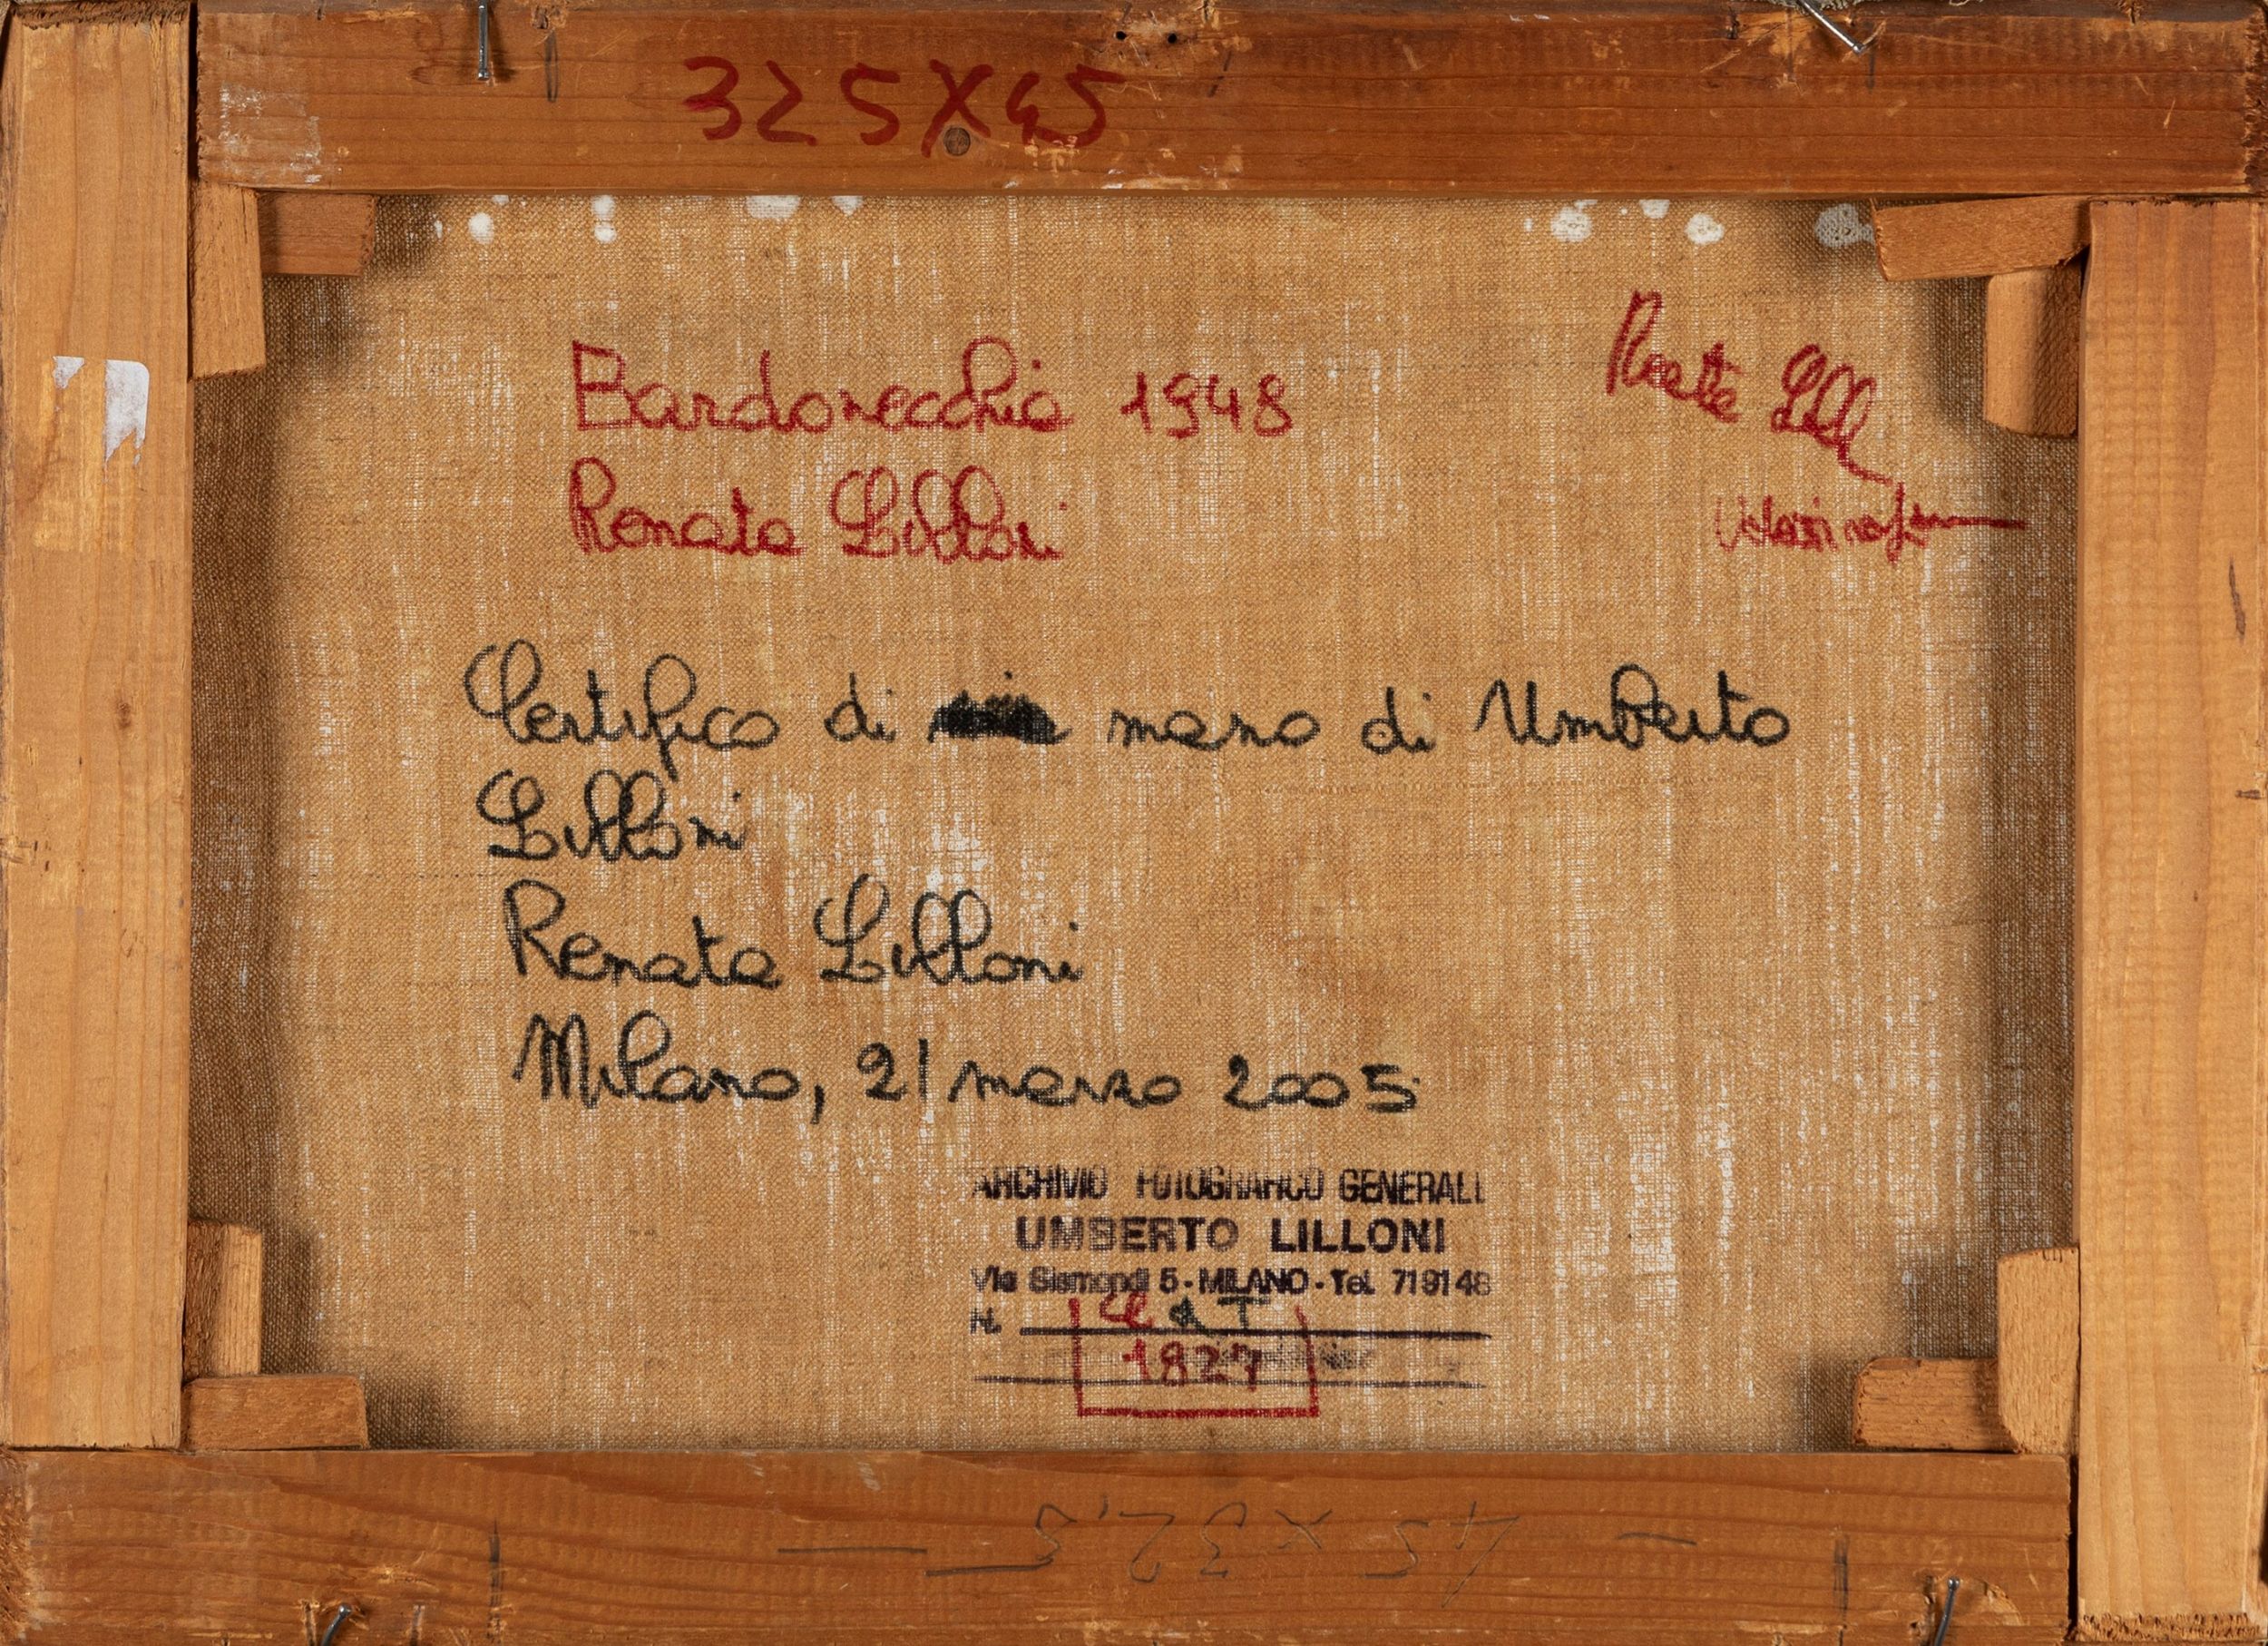 325X45
Bardonecchia 1948
Renata Lilloni
Renata Lill
Certifico di mano di Umberto
Lilloni
Renata Lilloni
Milano, 21 marzo 2005
ARCHIVIO FOTOGRAFICO GENERALE
UMBERTO LILLONI
Via Sismondi 5 - MILANO - Tel. 719148
N.
1827
45 x 32,5